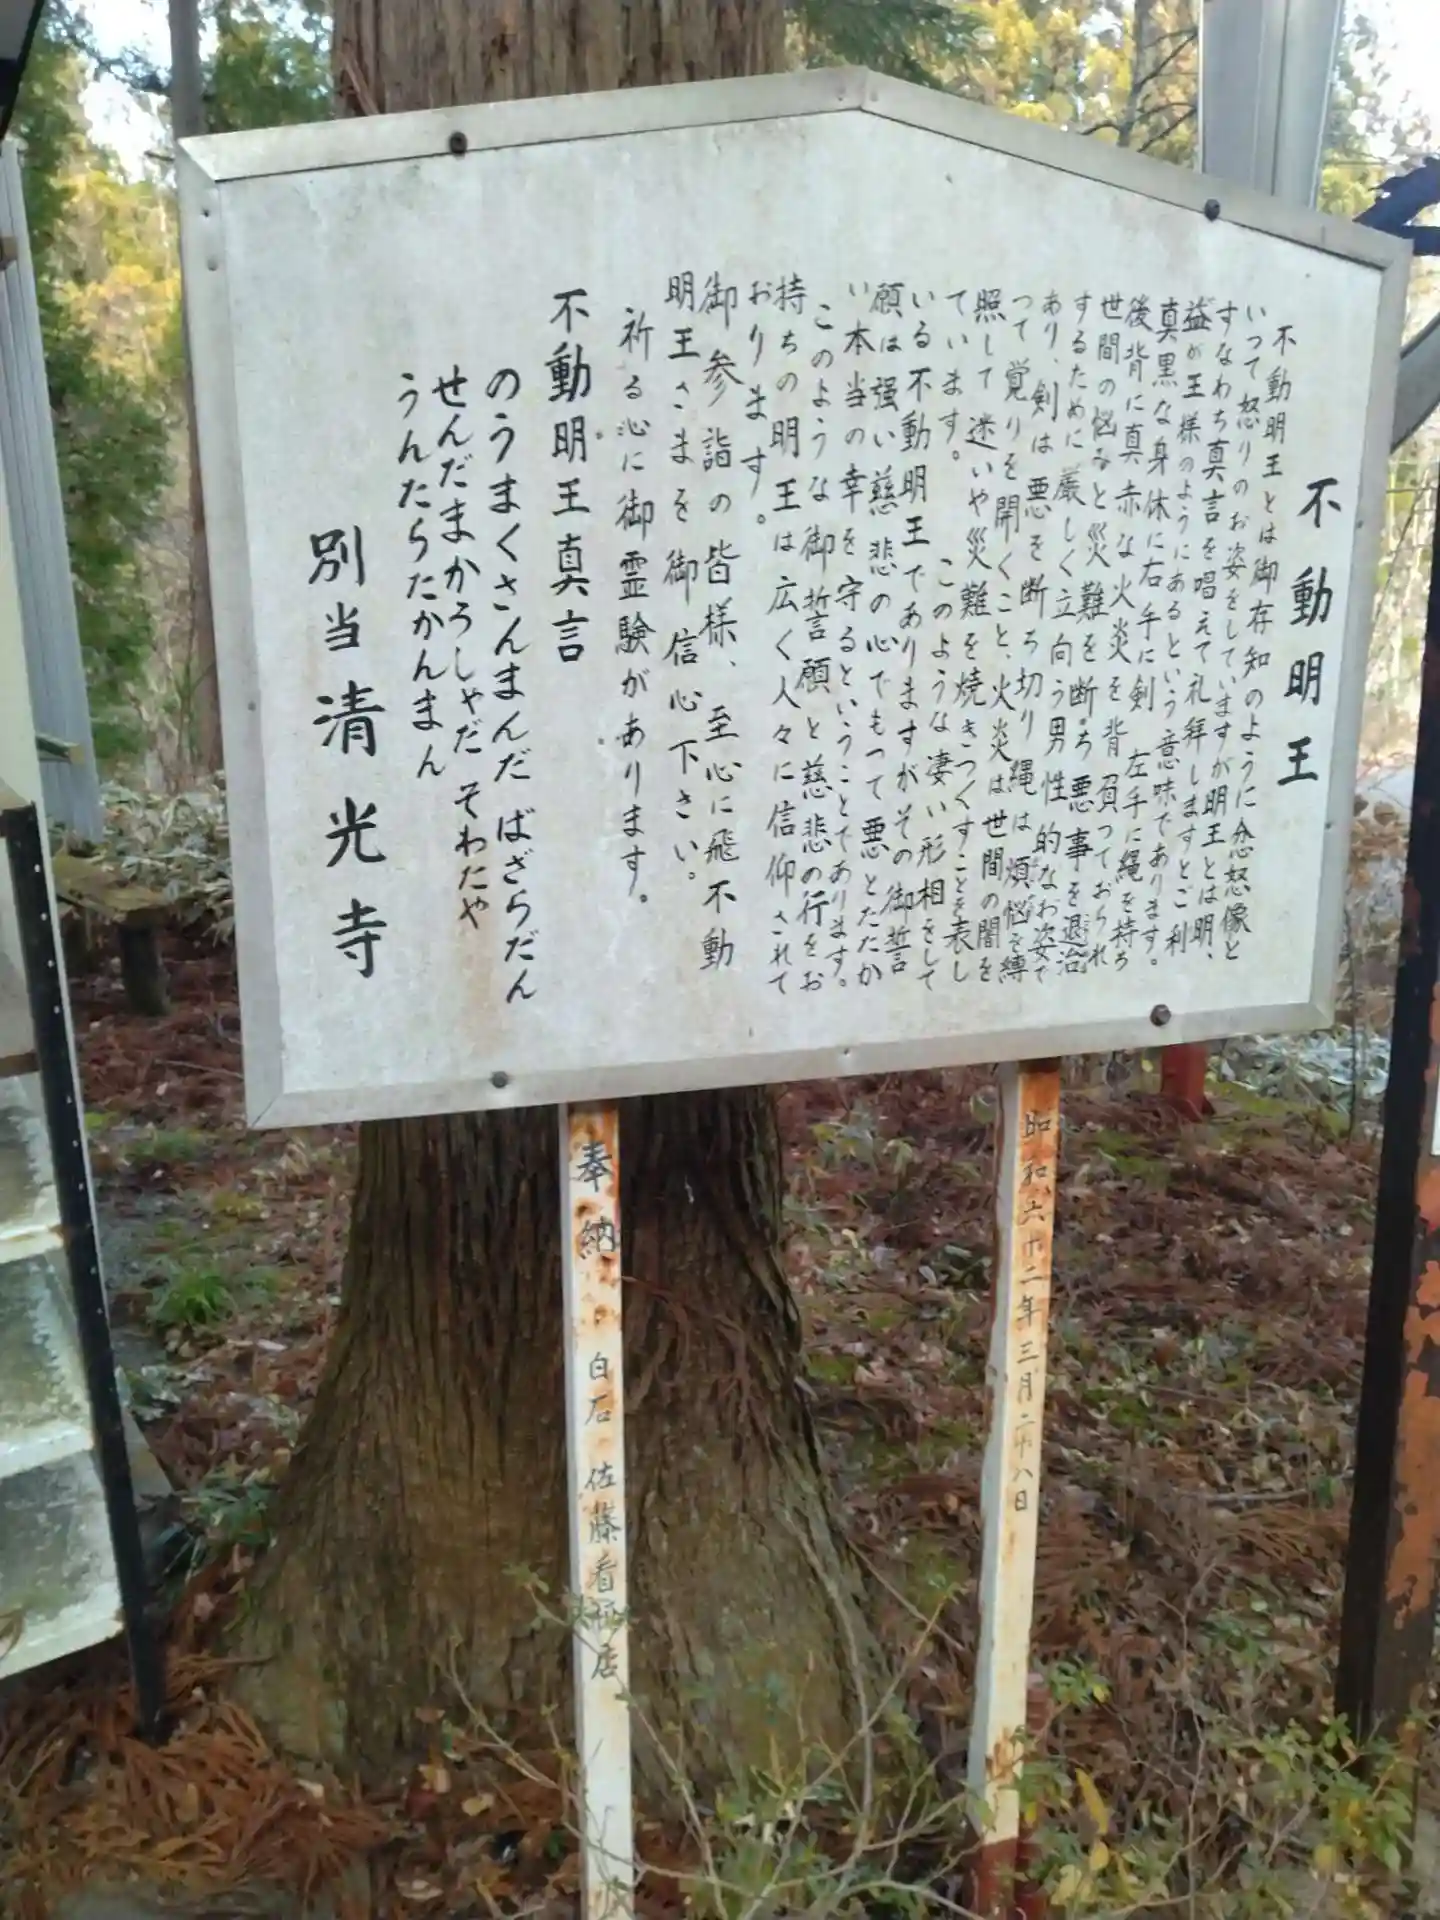 不動明王
不動明王とは御存知のように忿怒像と
いって怒りのお姿をしていますが明王とは明、
すなわち真言を唱えて礼拝しますとご利
益が王様のようにあるという意味であります。
真黒な身体に右手に剣 左手に縄を持ち
後背に真赤な火炎を背負っておられ
世間の悩みと災難を断ち悪事を退治
するために厳しく立向う男性的なお姿で
あり、剣は悪を断ち切り縄は煩悩を縛
って覚りを開くこと、火炎は世間の闇を
照して迷いや災難を焼きつくすことを表し
ています。 このような凄い形相をして
いる不動明王でありますがその御誓
願は強い慈悲の心でもって悪とたたか
い本当の幸を守るということであります。
このような御誓願と慈悲の行をお
持ちの明王は広く人々に信仰されて
おります。
御参詣の皆様、至心に飛不動
明王さまを御信心下さい。
祈る心に御霊験があります。
不動明王真言
のうまくさんまんだ ばざらだん
せんだまかろしゃだ そわたや
うんたらたかんまん
別当 清光寺
昭和六十二年三月二十八日
奉納 白石 佐藤看板店